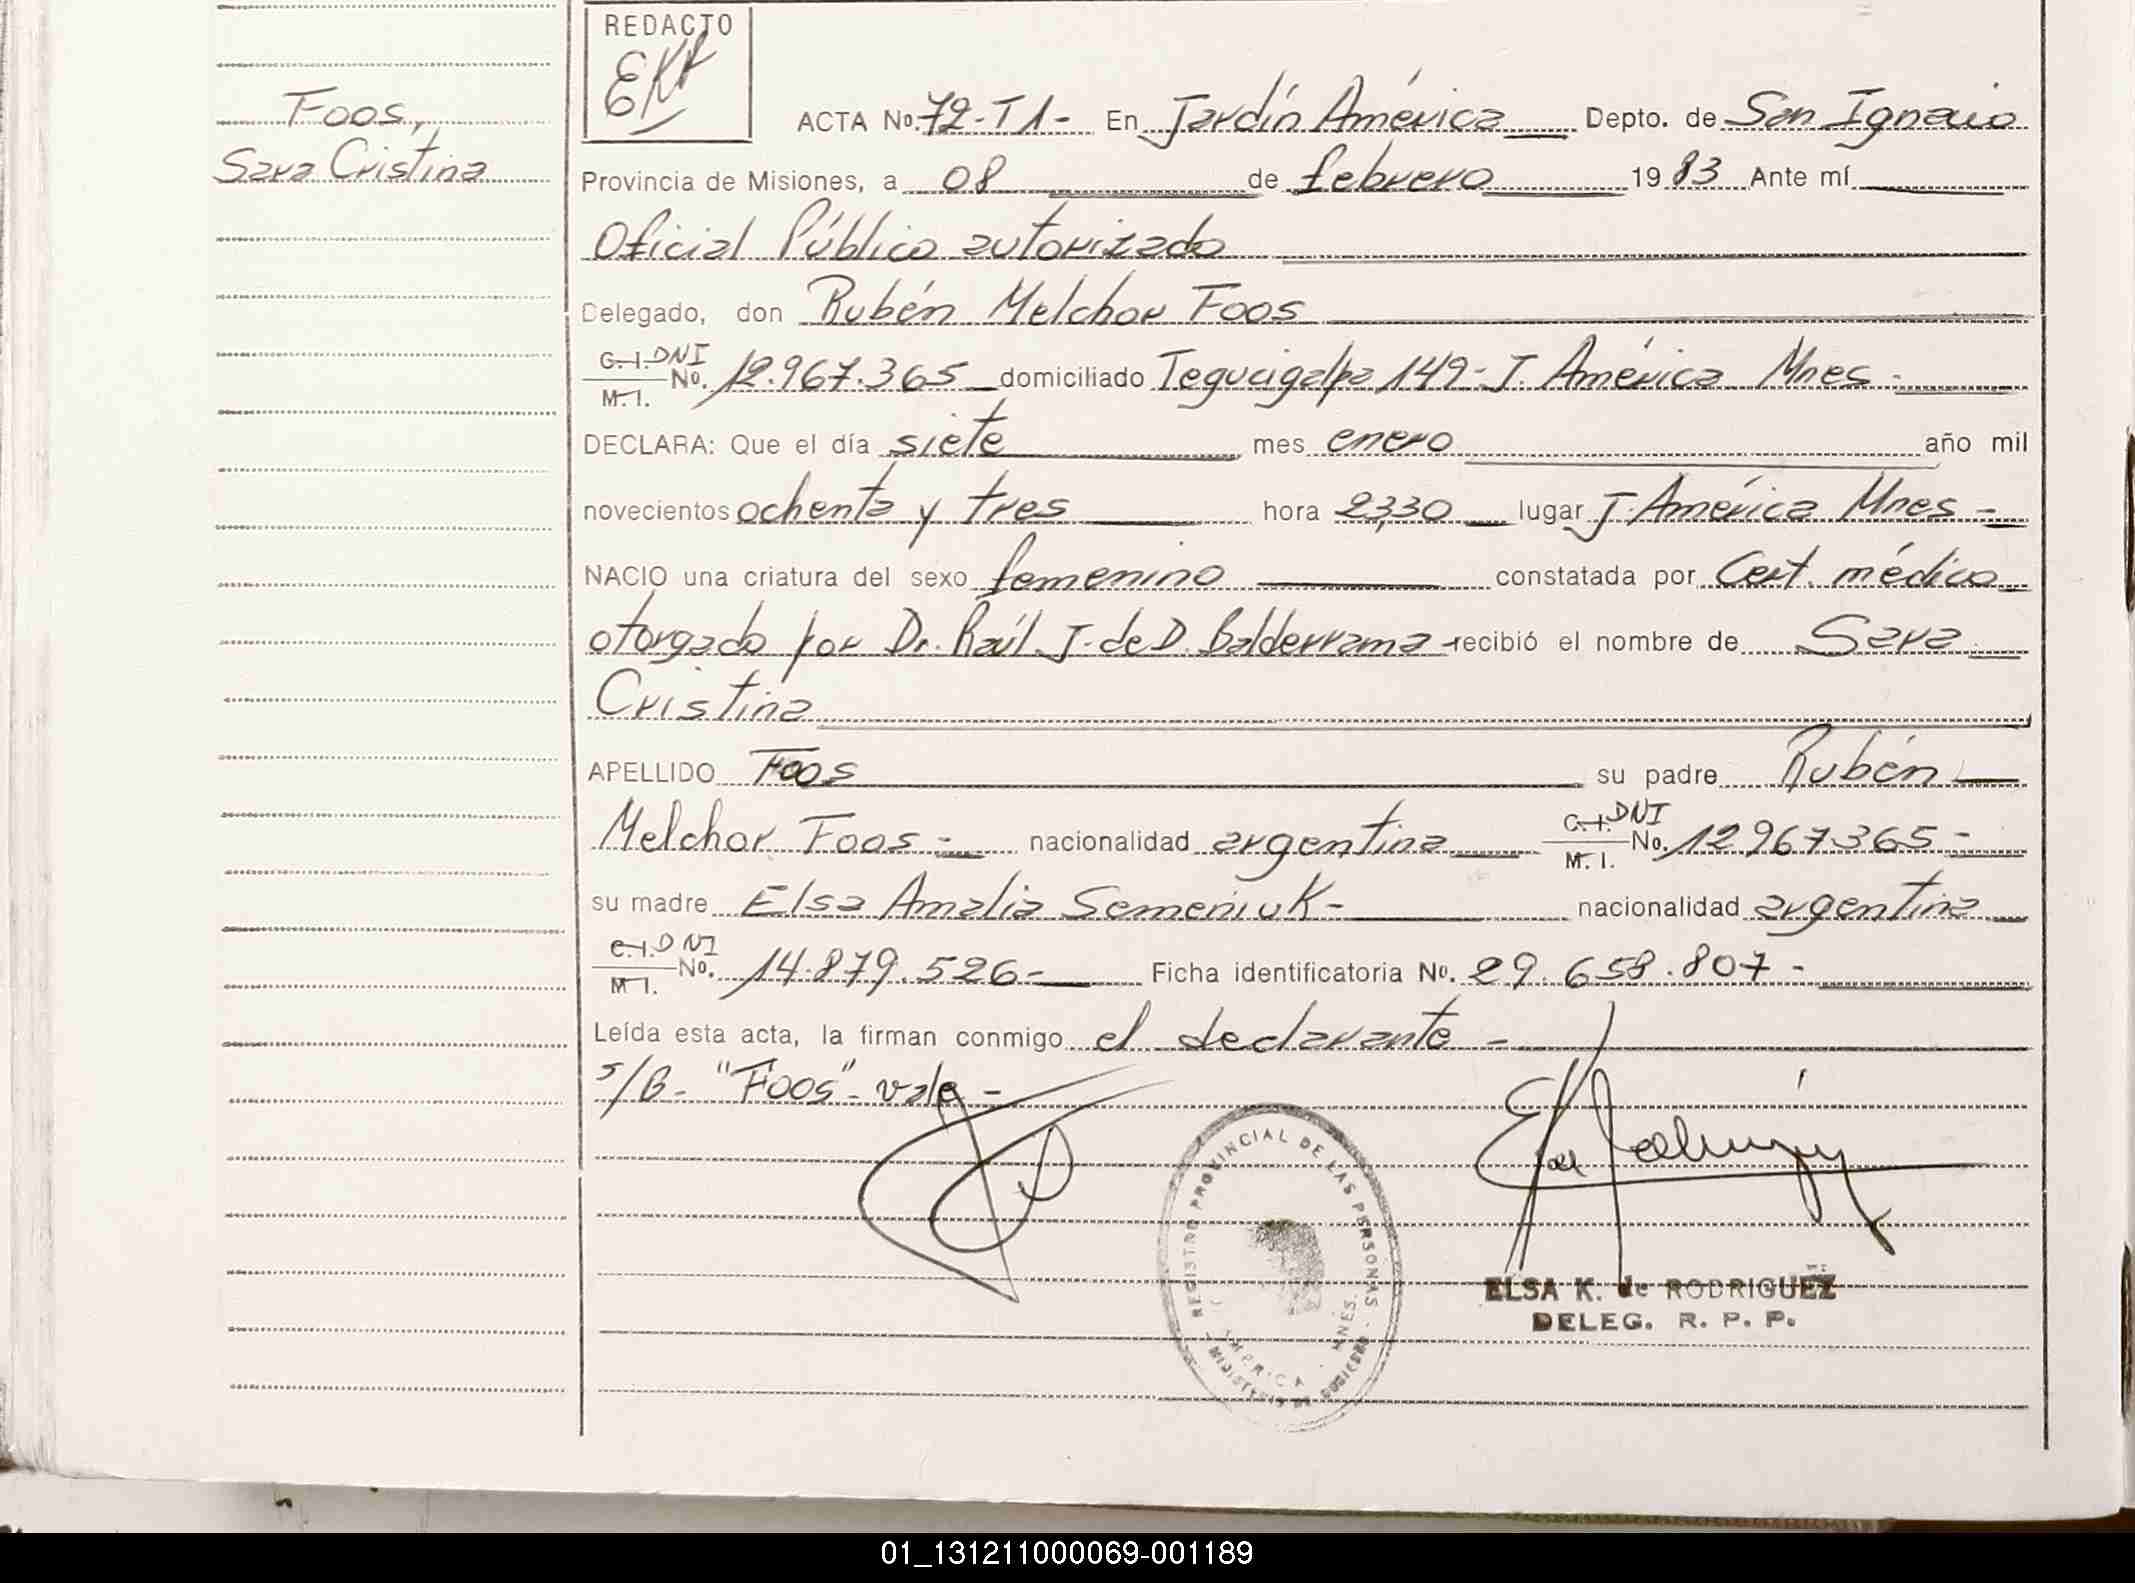 Foos,
Sara Cristina
REDACTO
ACTA No. 72-T1- En Jardín América Depto. de San Ignacio
Provincia de Misiones, a 08 de febrero 1983 Ante mí
Oficial Público autorizado
Delegado, don Rubén Melchor Foos
C.I. DNI
M.I. No. 12.967.365 domiciliado Tegucigalpa 149- J. América Mnes -
DECLARA: Que el día siete mes enero año mil
novecientos ochenta y tres hora 23,30 lugar J. América Mnes -
NACIO una criatura del sexo femenino constatada por Cert. médico
otorgado por Dr. Raúl J. de D. Balderrama recibió el nombre de Sara
Cristina
APELLIDO Foos su padre Rubén
Melchor Foos - nacionalidad argentina C.I. DNI M.I. No. 12967365 -
su madre Elsa Amalia Semeniuk - nacionalidad argentina
C.I. DNI
M.I. No. 14.879.526 - Ficha identificatoria No. 29.658.807 -
Leída esta acta, la firman conmigo el declarante -
s/B - "Foos" - vale -
REGISTRO PROVINCIAL DE LAS PERSONAS
ELSA K. de RODRIGUEZ
DELEG. R. P. P.
01_131211000069-001189